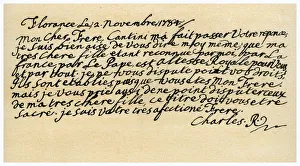 Florance Le 2 Novembre 1784
Mon Cher Frere Cantini m'a fait passer Votre reponce,
je Suis bien aise de Vous dire moy même que ma
tres chere fille etant reconnue par moy par la
france, par Le Pape est altesse Royale pour
et par tout; je ne Vous dispute point Vos droits,
Ils Sont etablis puisque Vous etes Mon Frere
mais je Vous prie aussi de ne point disputer ceux
de ma tres chere fille, ce titre doit Vous etre
Sacré. je Suis Votre tres affectioné Frere.
Charles. R